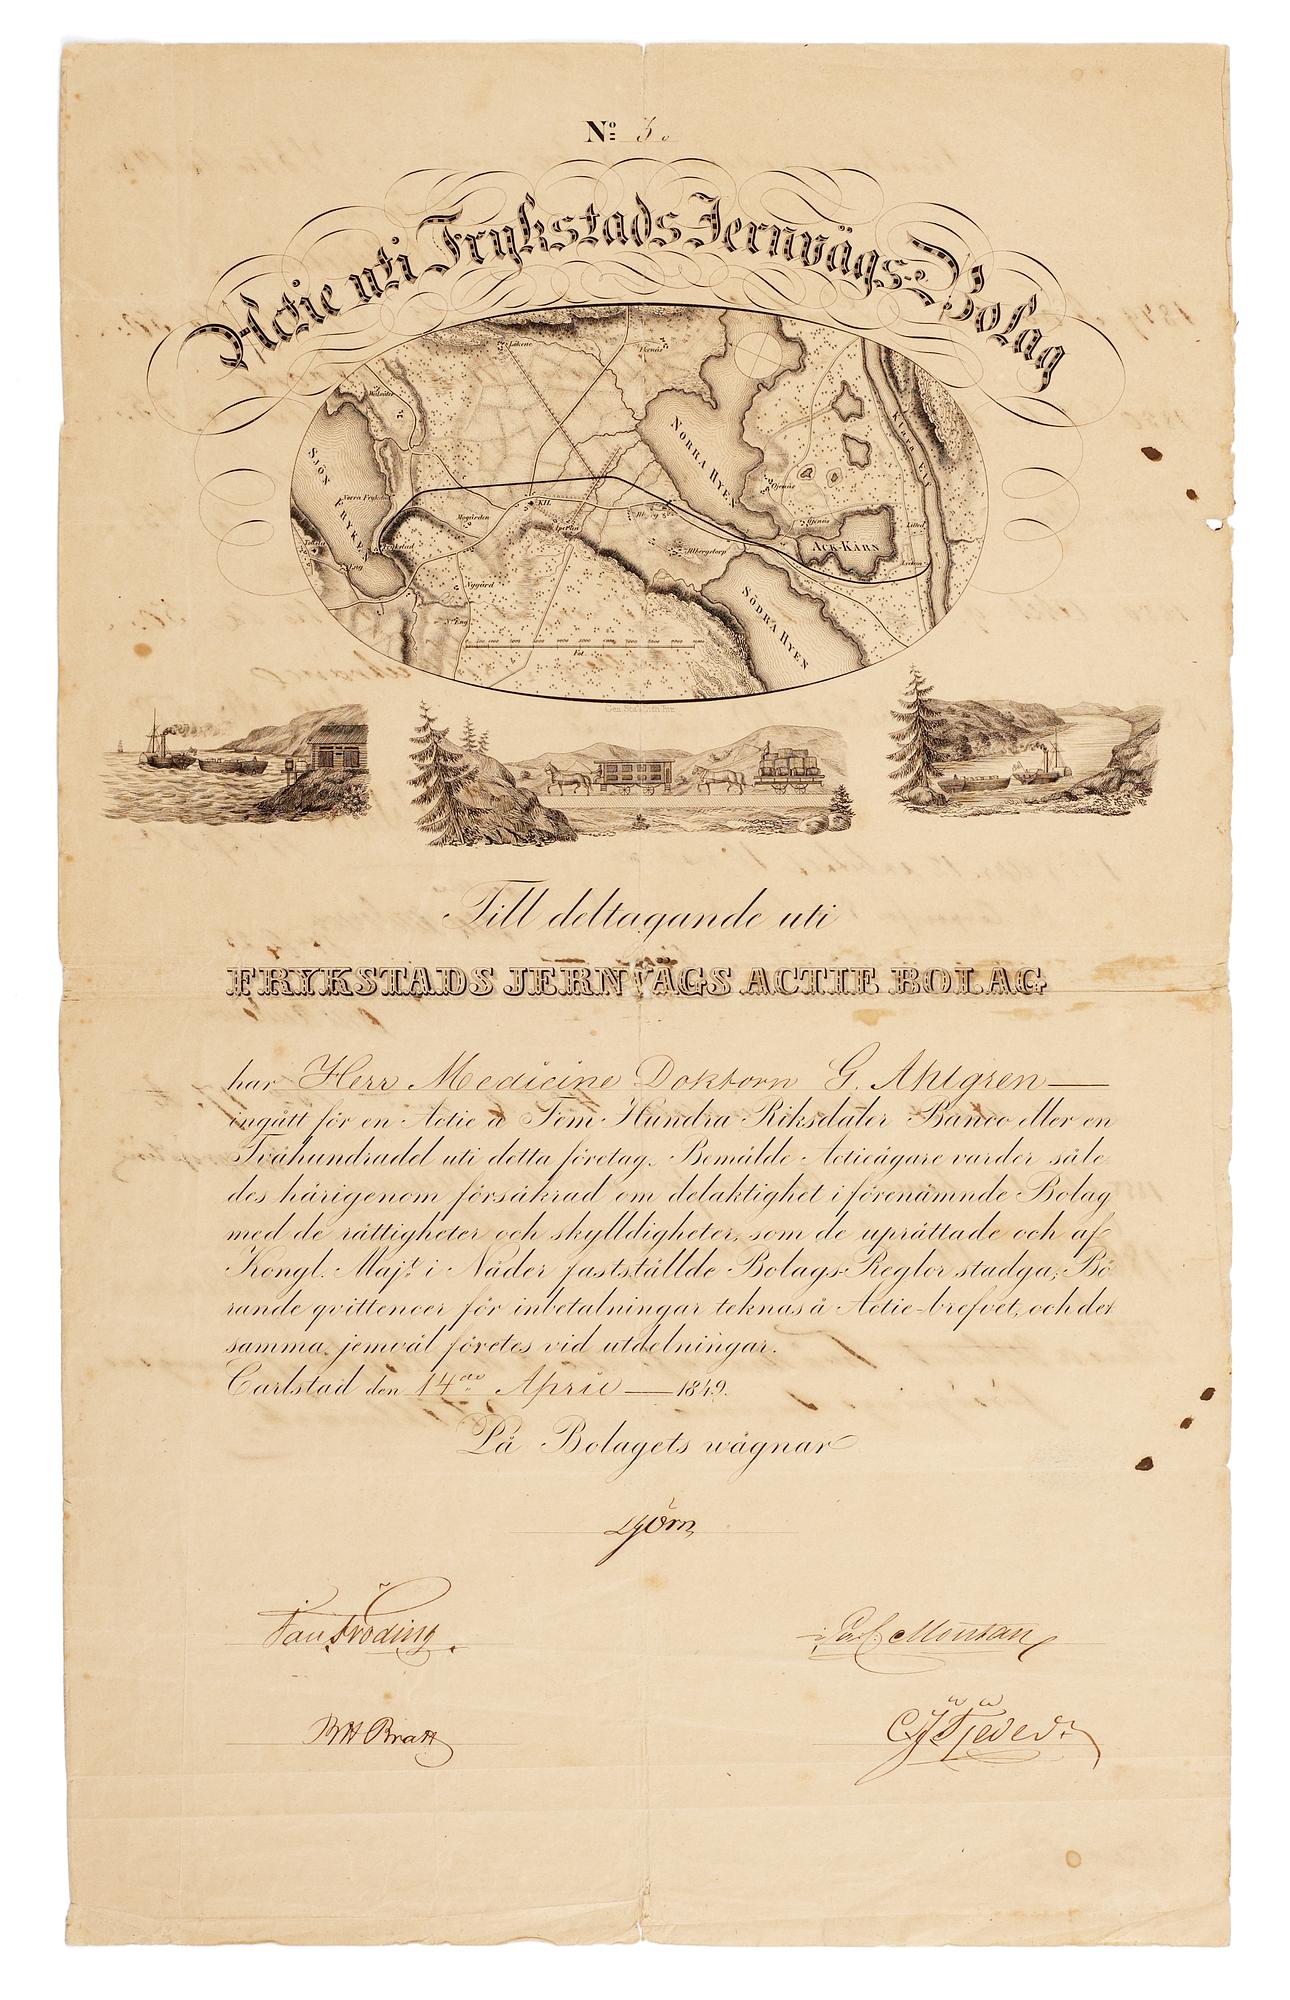 Nº 3.
Actie uti Frykstads Jernvägs-Bolag
Låkene
Sjön Fryken
Norra Hyen
Klara Elf
Norra Frykstad
Mogården
Kil
Ojenäs
Ack-Kärn
Lillud
Frykstad
Ilbergstorp
Nygård
Södra Hyen
N. Eng
Fot.
Gen. Stab. Lith. Inr.
Till deltagande uti
FRYKSTADS JERNVÄGS ACTIE BOLAG
har Herr Medicine Doktorn G. Ahlgren
ingått för en Actie a Fem Hundra Riksdaler Banco eller en
Tvåhundradel uti detta företag. Bemälde Actieägare varder såle
des härigenom försäkrad om delaktighet i förenämnde Bolag
med de rättigheter och skylldigheter, som de upprättade och af
Kongl. Majt. i Nåder fastställde Bolags-Reglor stadga; Bö
rande qvittencer för inbetalningar teknas å Actie-brefvet, och det
samma jemväl företes vid utdelningar.
Carlstad den 14de April 1849.
På Bolagets wägnar
Fröding
Carl Montan
Bratt